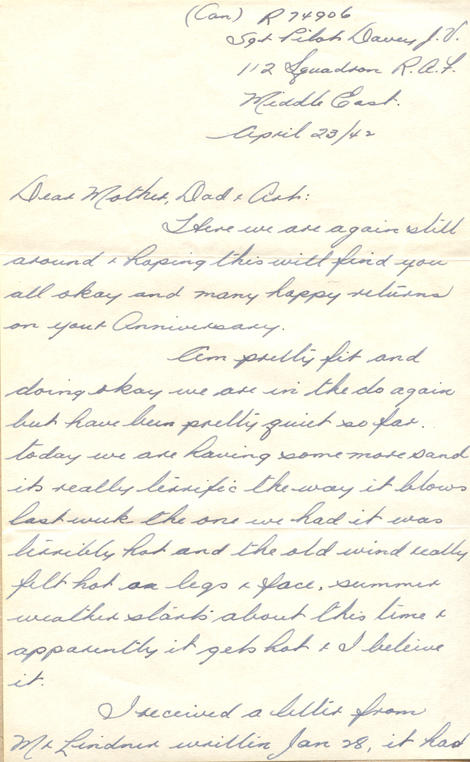 (Can) R 74906
Sgt Pilot Davey J.V.
112 Squadron R.A.F.
Middle East.
April 23/42
Dear Mother, Dad & Art:
Here we are again still
around & hoping this will find you
all okay and many happy returns
on your Anniversary.
Am pretty fit and
doing okay we are in the do again
but have been pretty quiet so far.
today we are having some more sand
its really terrific the way it blows
last week the one we had it was
terribly hot and the old wind really
felt hot on legs & face, summer
weather starts about this time &
apparently it gets hot & I beleive
it.
I received a letter from
Mr Lindner written Jan 28, it had